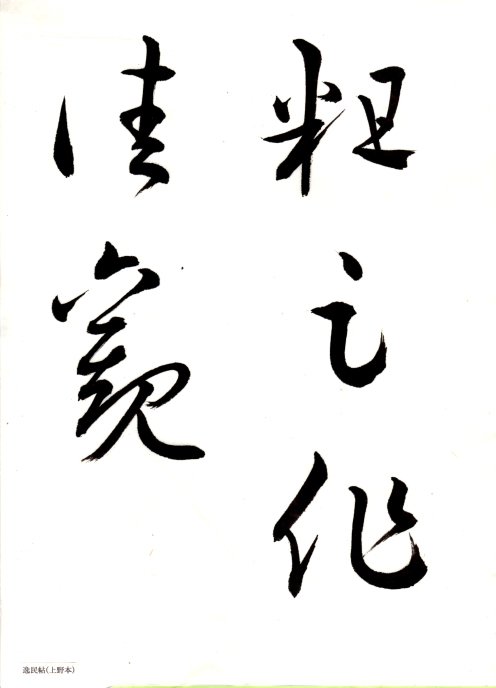 粗足作
佳觀
逸民帖(上野本)